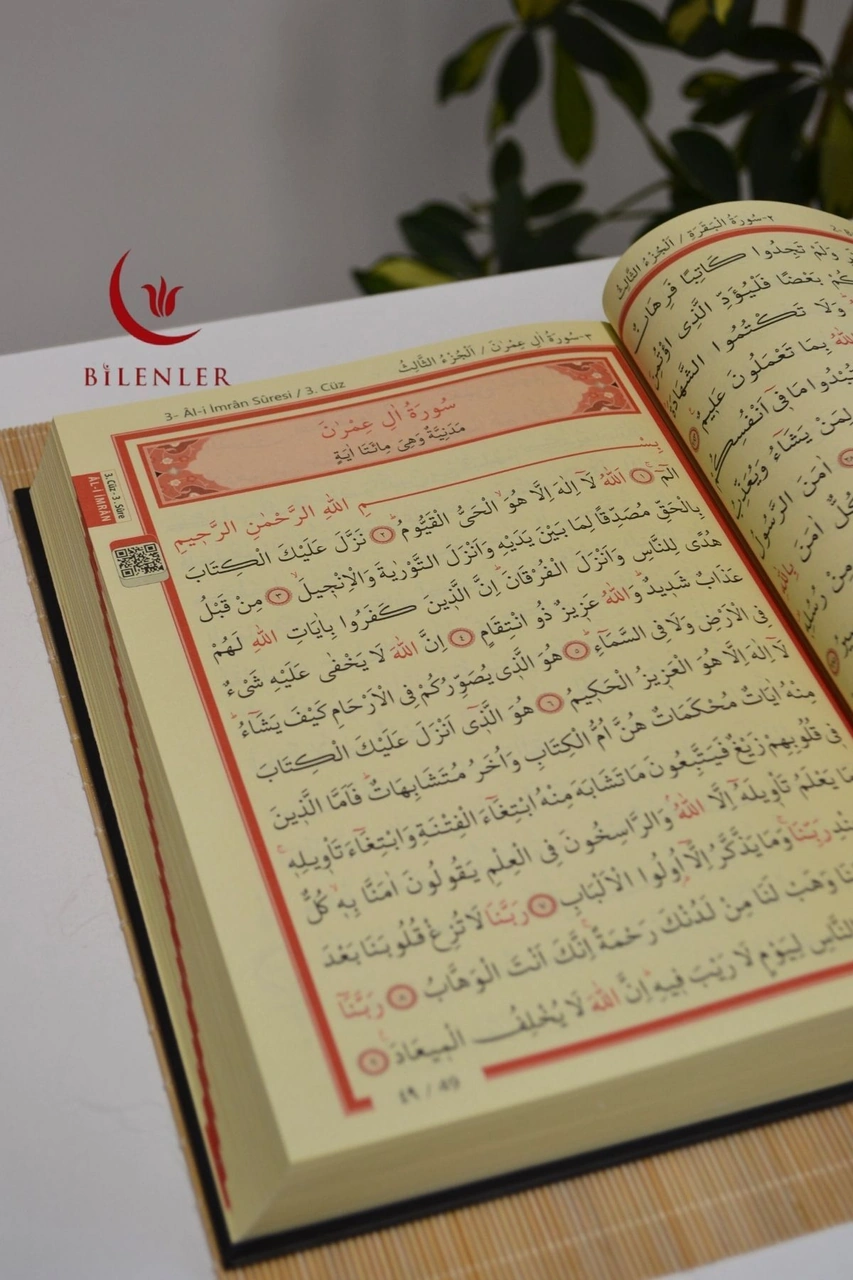 BİLENLER
3- Âl-i İmrân Sûresi / 3. Cüz
٣-سُورَةُ اٰلِ عِمْرٰنَ / اَلْجُزْءُ الثَّالِثُ
3. Cüz - 3. Sûre
ÂL-İ İMRÂN
سُورَةُ اٰلِ عِمْرٰنَ
مَدَنِيَّةٌ وَهِيَ مِائَتَا اٰيَةٍ
بِسْمِ اللّٰهِ الرَّحْمٰنِ الرَّحٖيمِ
الٓمٓ ١ اَللّٰهُ لَٓا اِلٰهَ اِلَّا هُوَۙ الْحَيُّ الْقَيُّومُۜ ٢ نَزَّلَ عَلَيْكَ الْكِتَابَ
بِالْحَقِّ مُصَدِّقًا لِمَا بَيْنَ يَدَيْهِ وَاَنْزَلَ التَّوْرٰيةَ وَالْاِنْجٖيلَۙ ٣ مِنْ قَبْلُ
هُدًى لِلنَّاسِ وَاَنْزَلَ الْفُرْقَانَۜ اِنَّ الَّذٖينَ كَفَرُوا بِاٰيَاتِ اللّٰهِ لَهُمْ
عَذَابٌ شَدٖيدٌۜ وَاللّٰهُ عَزٖيزٌ ذُو انْتِقَامٍ ٤ اِنَّ اللّٰهَ لَا يَخْفٰى عَلَيْهِ شَيْءٌ
فِي الْاَرْضِ وَلَا فِي السَّمَٓاءِۜ ٥ هُوَ الَّذٖي يُصَوِّرُكُمْ فِي الْاَرْحَامِ كَيْفَ يَشَٓاءُۜ
لَٓا اِلٰهَ اِلَّا هُوَ الْعَزٖيزُ الْحَكٖيمُ ٦ هُوَ الَّذٖٓي اَنْزَلَ عَلَيْكَ الْكِتَابَ
مِنْهُ اٰيَاتٌ مُحْكَمَاتٌ هُنَّ اُمُّ الْكِتَابِ وَاُخَرُ مُتَشَابِهَاتٌۜ فَاَمَّا الَّذٖينَ
فٖي قُلُوبِهِمْ زَيْغٌ فَيَتَّبِعُونَ مَا تَشَابَهَ مِنْهُ ابْتِغَٓاءَ الْفِتْنَةِ وَابْتِغَٓاءَ تَأْوٖيلِهٖۚ
يَعْلَمُ تَأْوٖيلَهُٓ اِلَّا اللّٰهُۢ وَالرَّاسِخُونَ فِي الْعِلْمِ يَقُولُونَ اٰمَنَّا بِهٖۙ كُلٌّ
رَبِّنَاۚ وَمَا يَذَّكَّرُ اِلَّٓا اُولُوا الْاَلْبَابِ ٧ رَبَّنَا لَا تُزِغْ قُلُوبَنَا بَعْدَ
وَهَبْ لَنَا مِنْ لَدُنْكَ رَحْمَةًۚ اِنَّكَ اَنْتَ الْوَهَّابُ ٨ رَبَّنَٓا
النَّاسِ لِيَوْمٍ لَا رَيْبَ فٖيهِۜ اِنَّ اللّٰهَ لَا يُخْلِفُ الْمٖيعَادَ۟ ٩
٤٩ / 49
٢-سُورَةُ الْبَقَرَةِ / اَلْجُزْءُ الثَّالِثُ
وَلَمْ تَجِدُوا كَاتِبًا فَرِهَانٌ
بَعْضًا فَلْيُؤَدِّ الَّذِي اؤْتُمِنَ
وَلَا تَكْتُمُوا الشَّهَادَةَ
بِمَا تَعْمَلُونَ عَلٖيمٌ
مَا فٖٓي اَنْفُسِكُمْ
لِمَنْ يَشَٓاءُ وَيُعَذِّبُ
اٰمَنَ الرَّسُولُ
اٰمَنَ بِاللّٰهِ
مِنْ رُسُلِهٖ